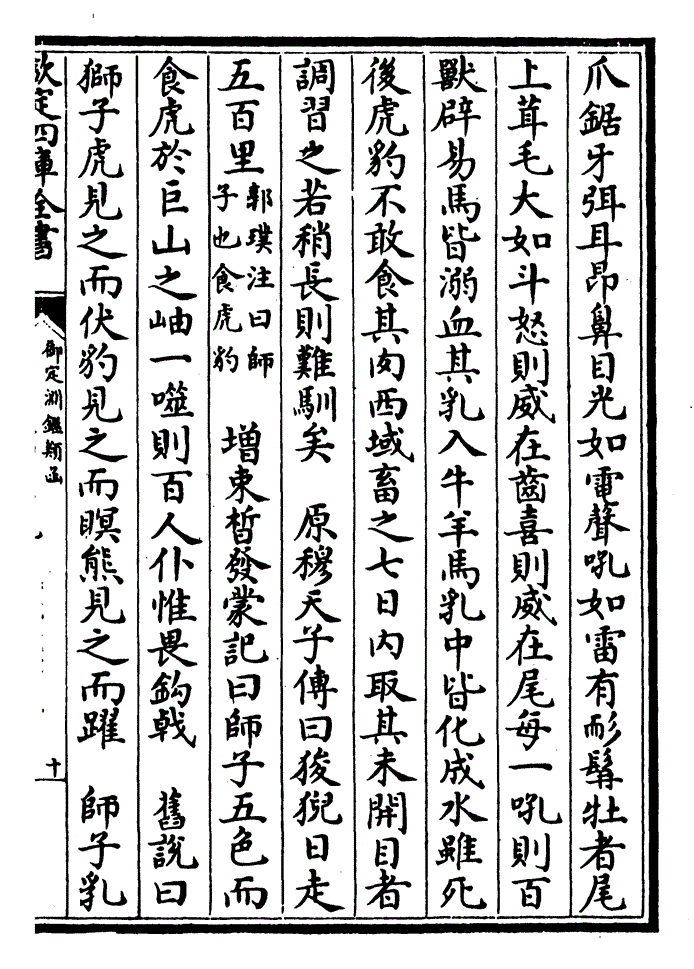 爪鋸牙弭耳昂鼻目光如電聲吼如雷有耏髯牡者尾
上茸毛大如斗怒則威在齒喜則威在尾每一吼則百
獸辟易馬皆溺血其乳入牛羊馬乳中皆化成水雖死
後虎豹不敢食其肉西域畜之七日內取其未開目者
調習之若稍長則難馴矣 原穆天子傳曰狻猊日走
五百里郭璞注曰師子也食虎豹 增束皙發蒙記曰師子五色而
食虎於巨山之岫一噬則百人仆惟畏鈎戟 舊說曰
獅子虎見之而伏豹見之而瞑熊見之而躍 師子乳
欽定四庫全書
御定淵鑑類函
十